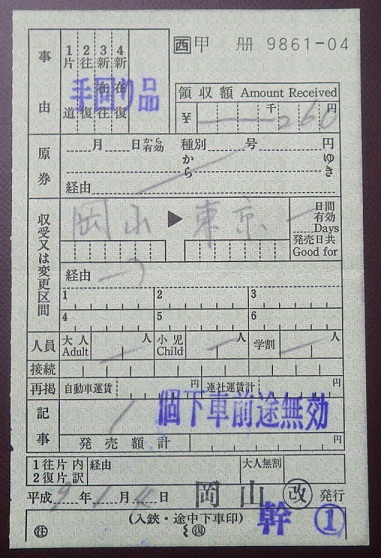 西 甲 冊 9861-04
事由
1片道 2往復 3新在往 4新在復
手回り品
領収額 Amount Received
¥ 千 260 円
原券
月 日から有効 種別 号 円
から ゆき
経由
収受又は変更区間
岡山 ▶ 東京
日間有効 Days
発売日共 Good for
経由
1 2 3
4 5 6
人員 大人 Adult 人 小児 Child 人 学割 人
接続
再掲 自動車運賃 円 連社運賃計 円
記事
1個 下車前途無効
発売額計 円
1往片 内 経由 大人無割
2復片 訳 円
平成 9年 1月 4日 岡山 改 発行
(入鋏・途中下車印)
往 復 幹 1